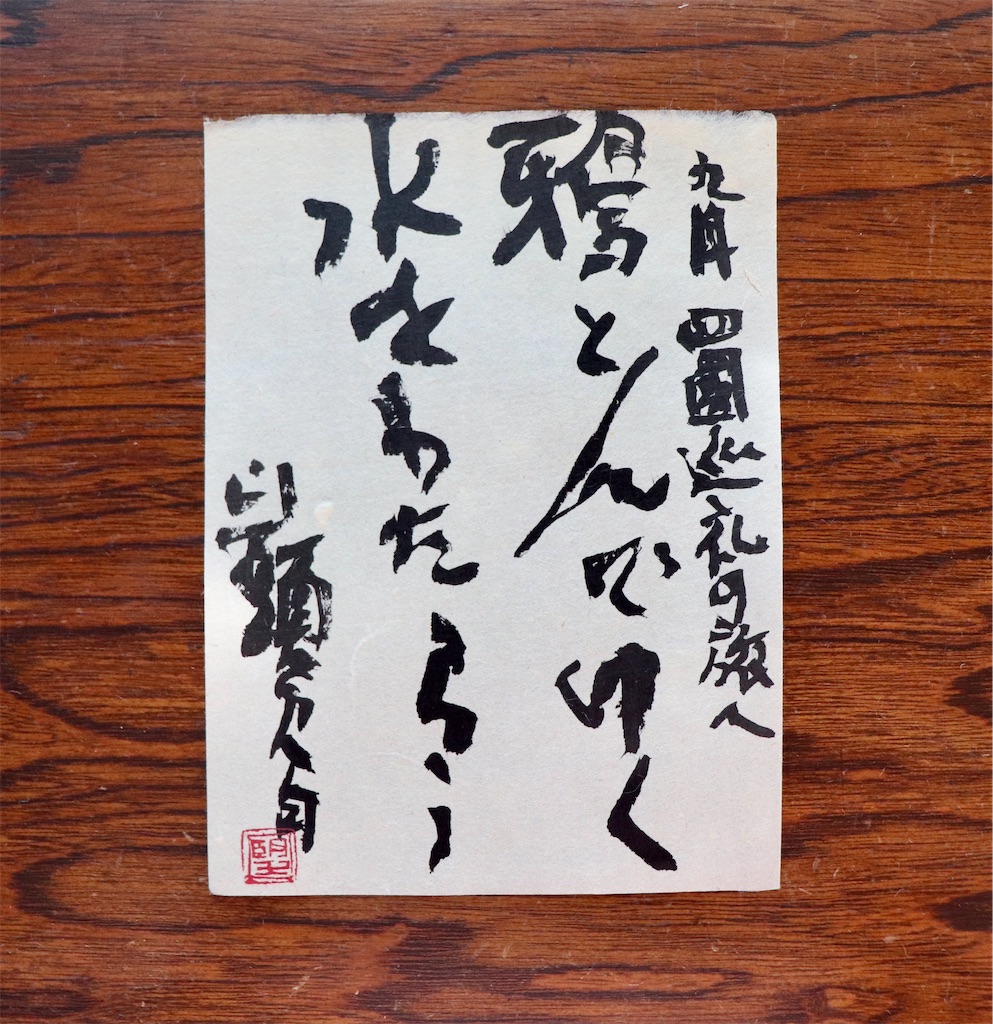 九月 四國巡礼の旅へ
鴉とんでゆく
水をわたらう
山頭火句